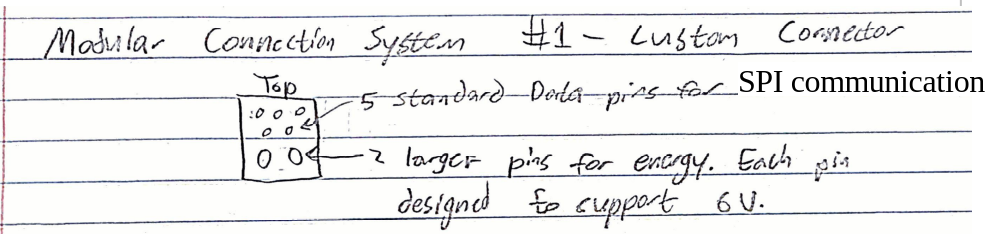 Modular Connection System #1 - Custom Connector
Top
5 standard Data pins for SPI communication
2 larger pins for energy. Each pin
designed to support 6V.